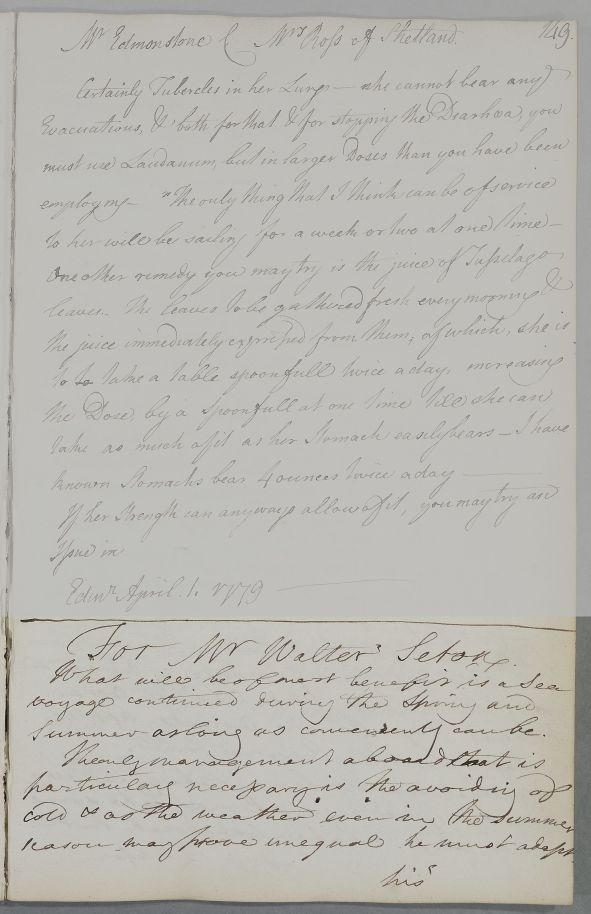 Mr Edmonstone C Mrs Ross of Shetland. 149.
Certainly Tubercles in her Lungs — she cannot bear any
Evacuations, & both for that & for stopping the Diarhœa, you
must use Laudanum, but in larger Doses than you have been
employing — The only thing that I think can be of service
to her will be sailing for a week or two at one time —
One other remedy you may try is the juice of Tussilago
leaves. The leaves to be gathered fresh every morning &
the juice immediately expressed from them, of which, she is
to to take a table spoonfull twice a day, increasing
the Dose, by a spoonfull at one time till she can
take as much of it as her Stomach easily bears — I have
known Stomachs bear 4 ounces twice a day —
If her Strength can anyways allow of it, you may try an
Issue in
Edinr April. 1. 1779 —
For Mr Walter Seton.
What will be of most benefit is a Sea
voyage continued during the Spring and
Summer as long as conveniently can be.
The only management aboard that is
particularly necessary is the avoiding of
cold & as the weather even in the Summer
season may prove unequal he must adapt
his